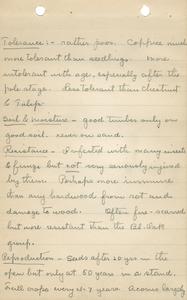 Tolerance:- rather poor. Coppice much
more tolerant than seedlings. More
intolerant with age, especially after the
pole stage. Less tolerant than chestnut
& Tulip.
Soil & moisture - good timber only on
good soil. never on sand.
Resistance - Infected with many insects
& fungi but not very seriously injured
by them. Perhaps more immune
than any hardwood from rot and
damage to wood. Often fire-scarred
but more resistant than the Bl. Oak
group.
Reproduction - Seeds after 20 yrs in the
open but only at 50 years in a stand.
Full crops every 4-7 years. Acorns largely